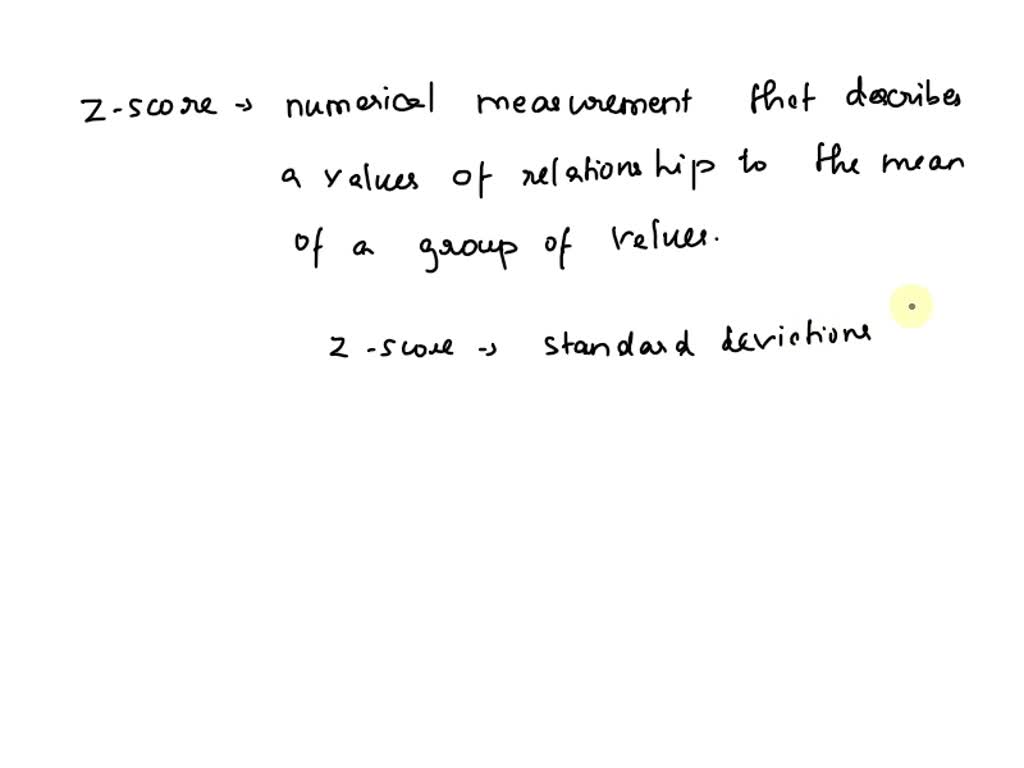 z-score → numerical measurement that describes
a values of relationship to the mean
of a group of values.
z-score → standard deviations